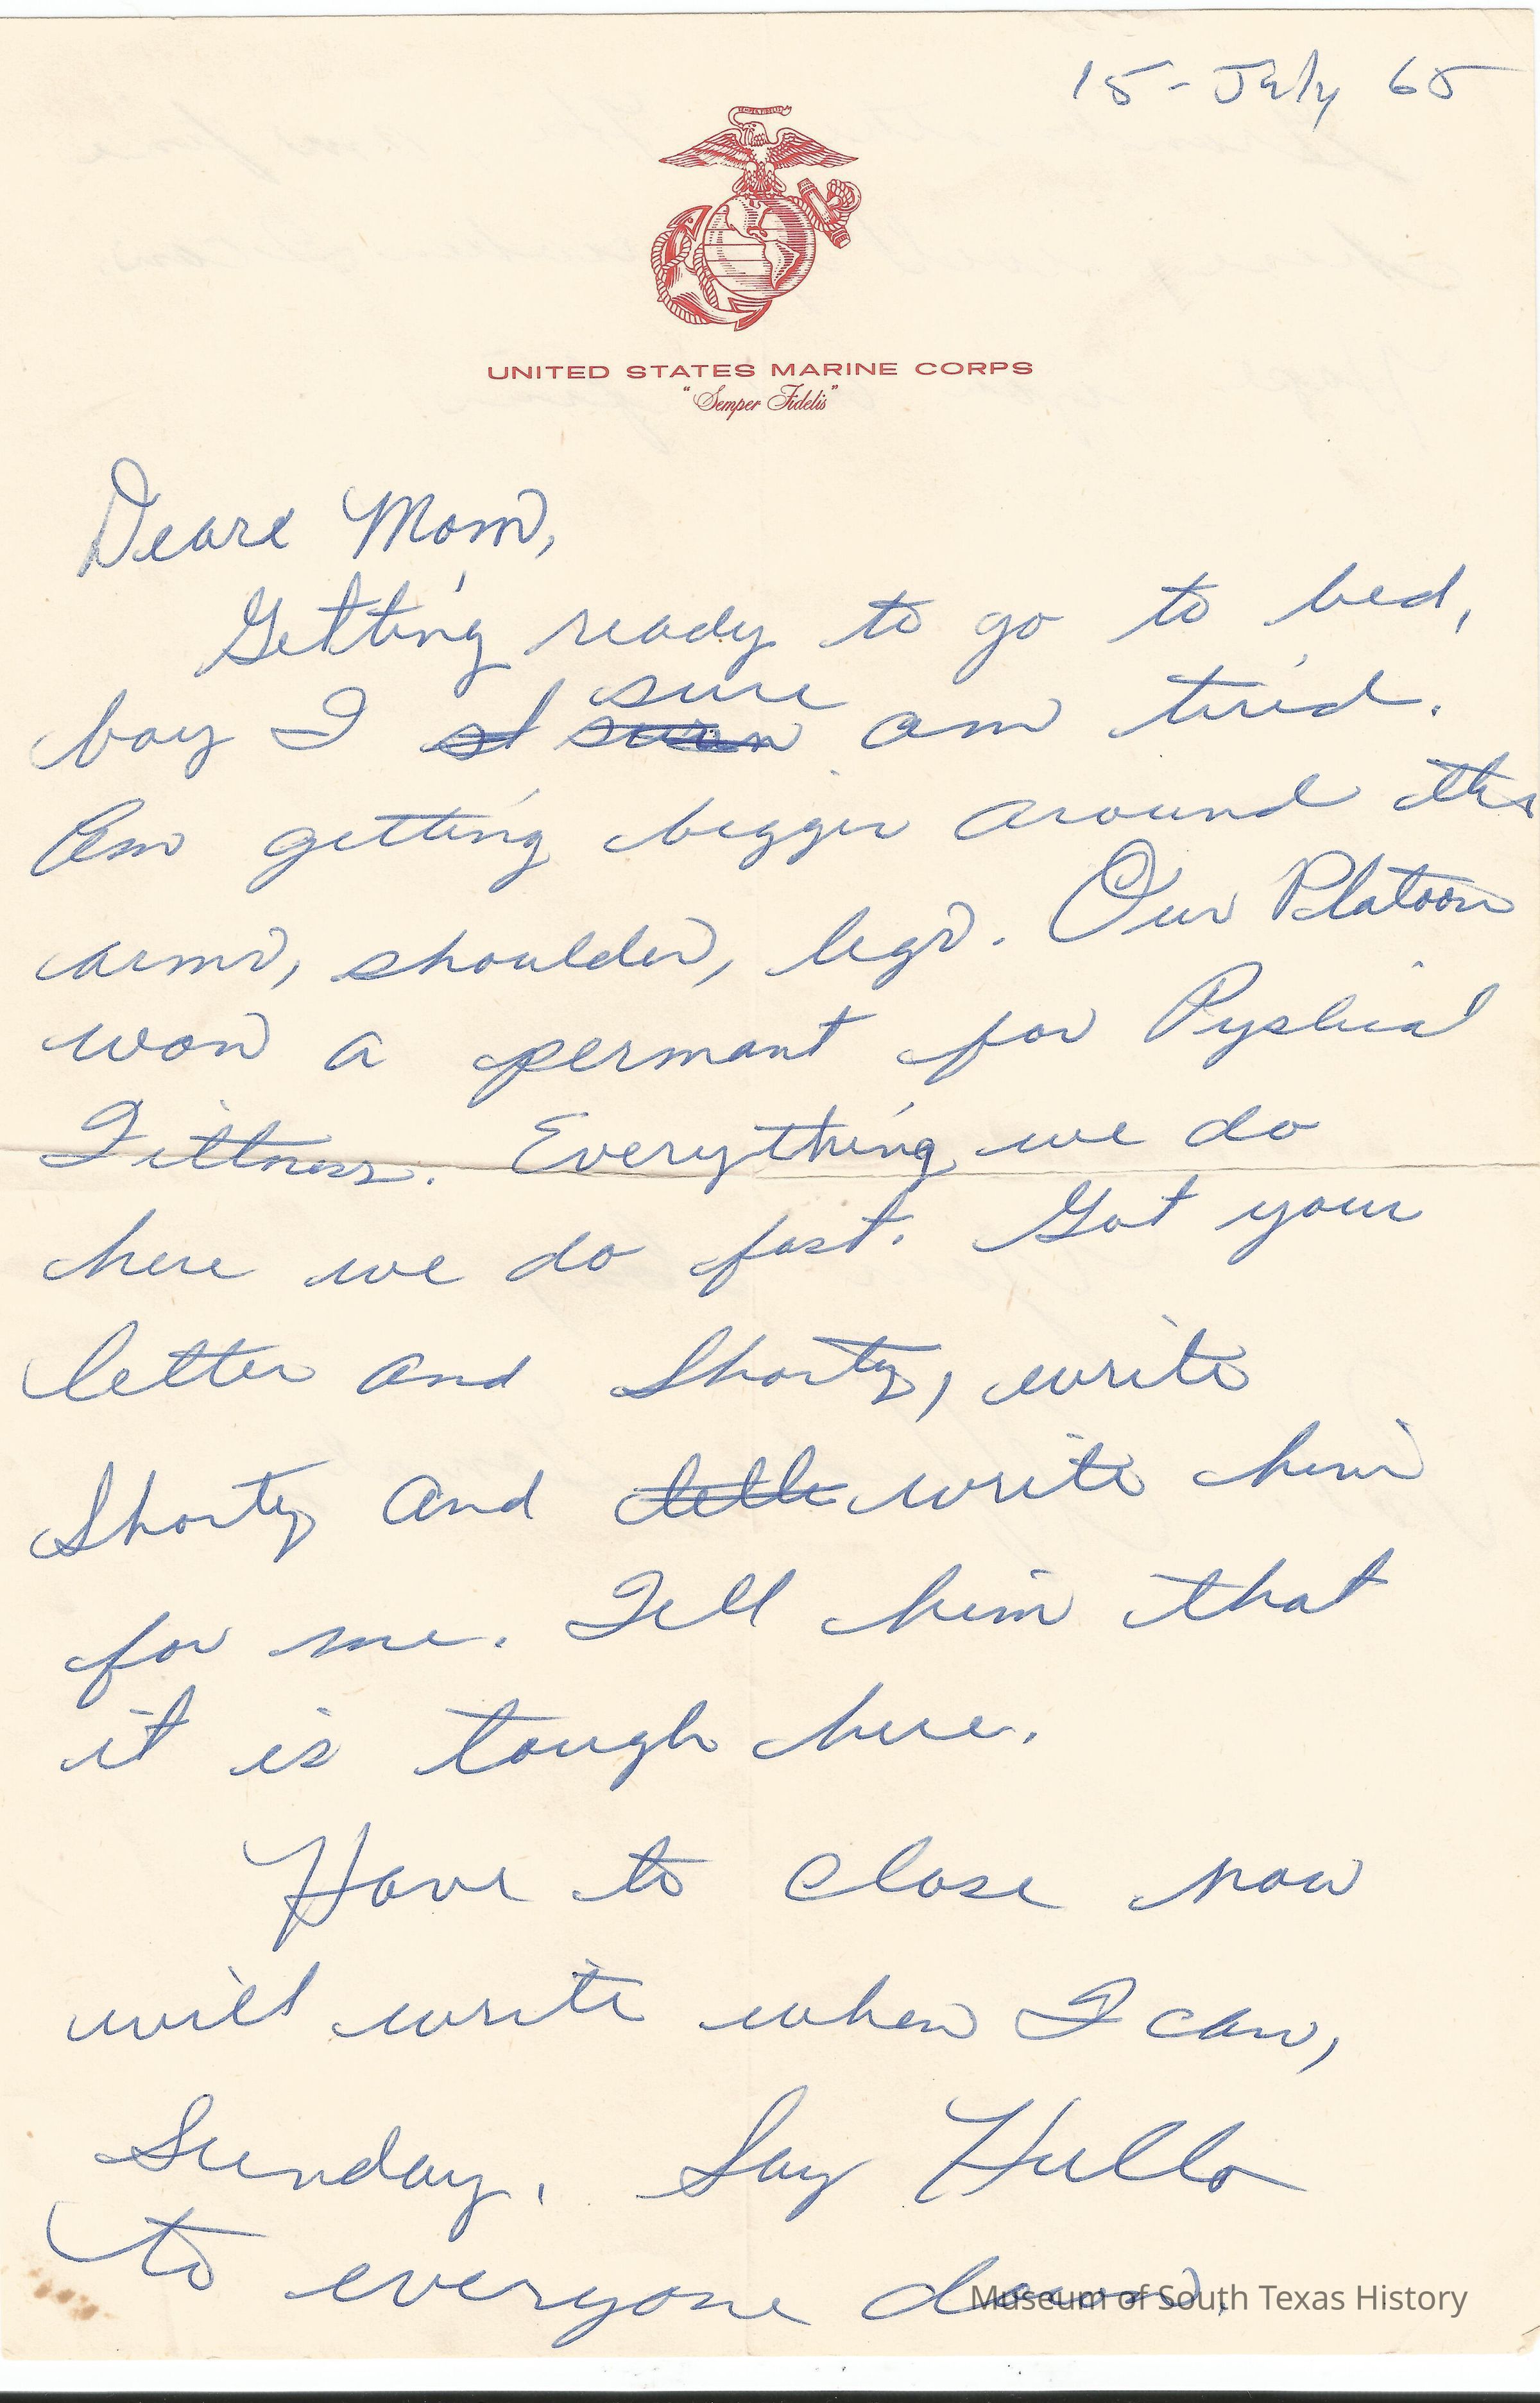 15-July 65
SEMPER FIDELIS
UNITED STATES MARINE CORPS
"Semper Fidelis"
Deare Mom,
Getting ready to go to bed,
boy I sure am tired.
Am getting bigger around the
arms, shoulder, legs. Our Platoon
won a permant for Pyshical
Fittness. Everything we do
here we do fast. Got your
letter and Shorty, write
Shorty and write him
for me. Tell him that
it is tough here.
Have to close now
will write when I can,
Sunday. Say Hello
to everyone down.
Museum of South Texas History